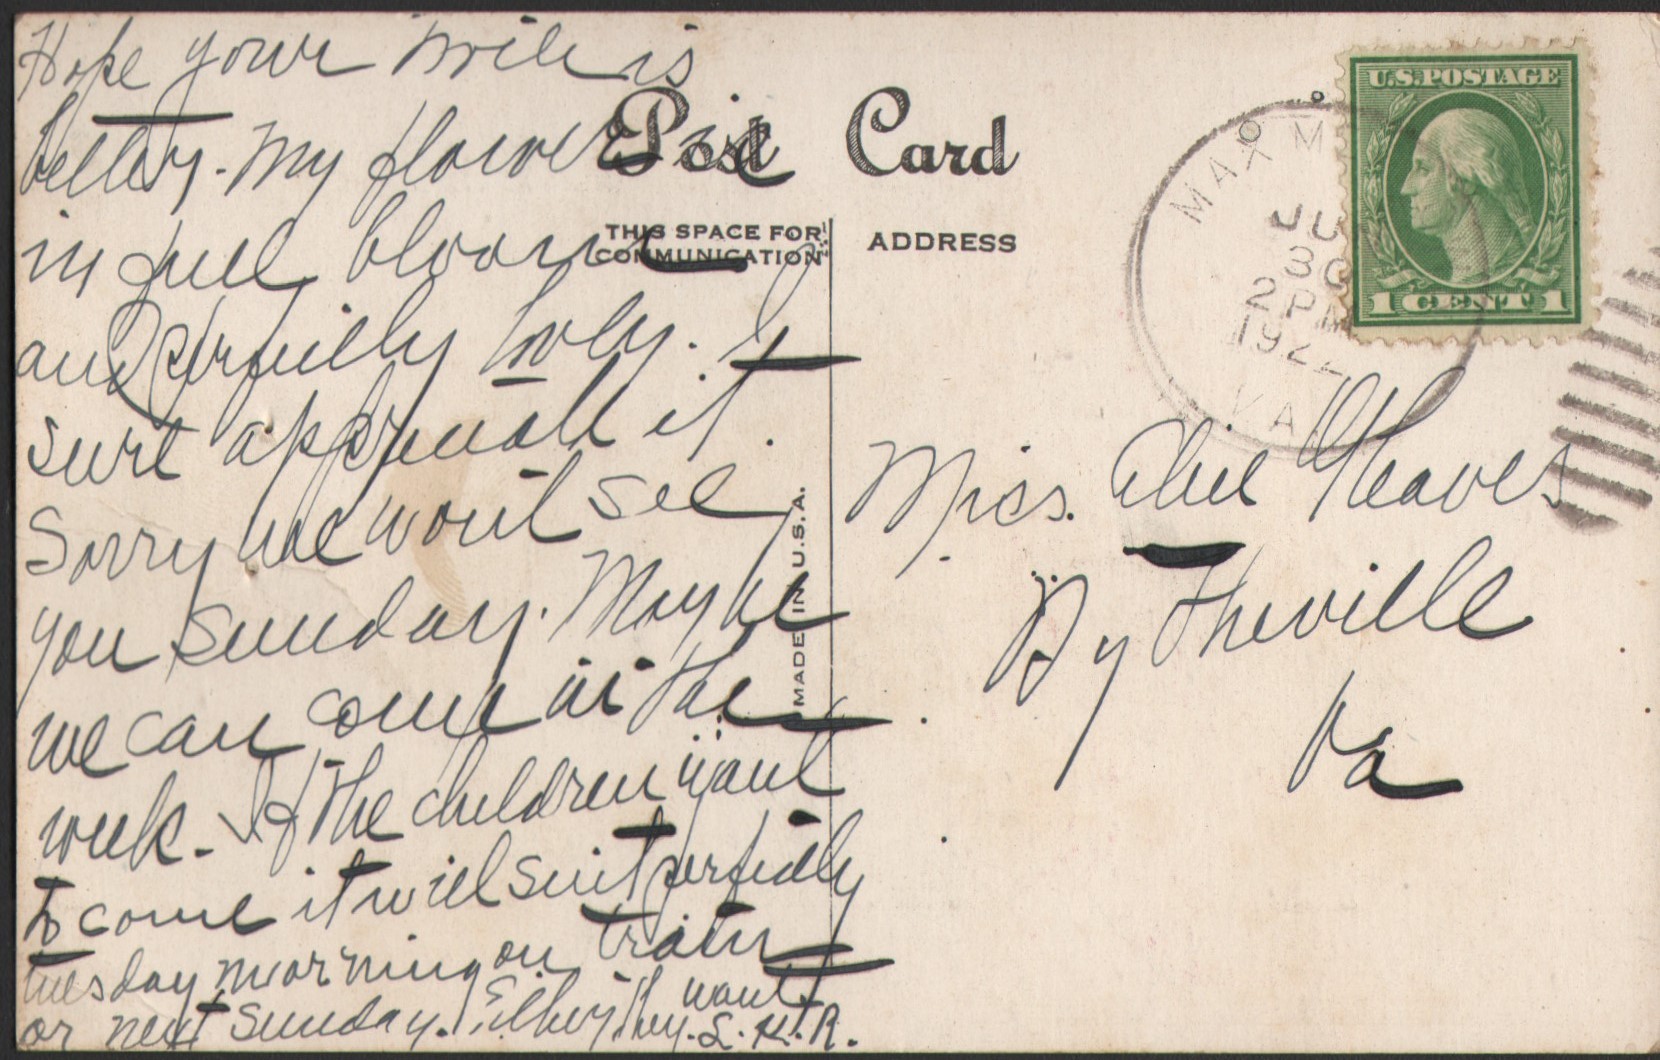 Hope your milk is
better. My flowers are
in full bloom
and perfectly lovely. I
sure appreciate it.
Sorry we won't see
you Sunday. Maybe
we can come in the
week. If the children want
to come it will suit perfectly
Tuesday morning on train
or next Sunday. Either they want
S. K. R.
Post Card
THIS SPACE FOR
COMMUNICATION
ADDRESS
MADE IN U.S.A.
U.S. POSTAGE
1 CENT 1
MAX M
JU
30
2 PM
192
VA
Miss. Gleaves
Wytheville
Va